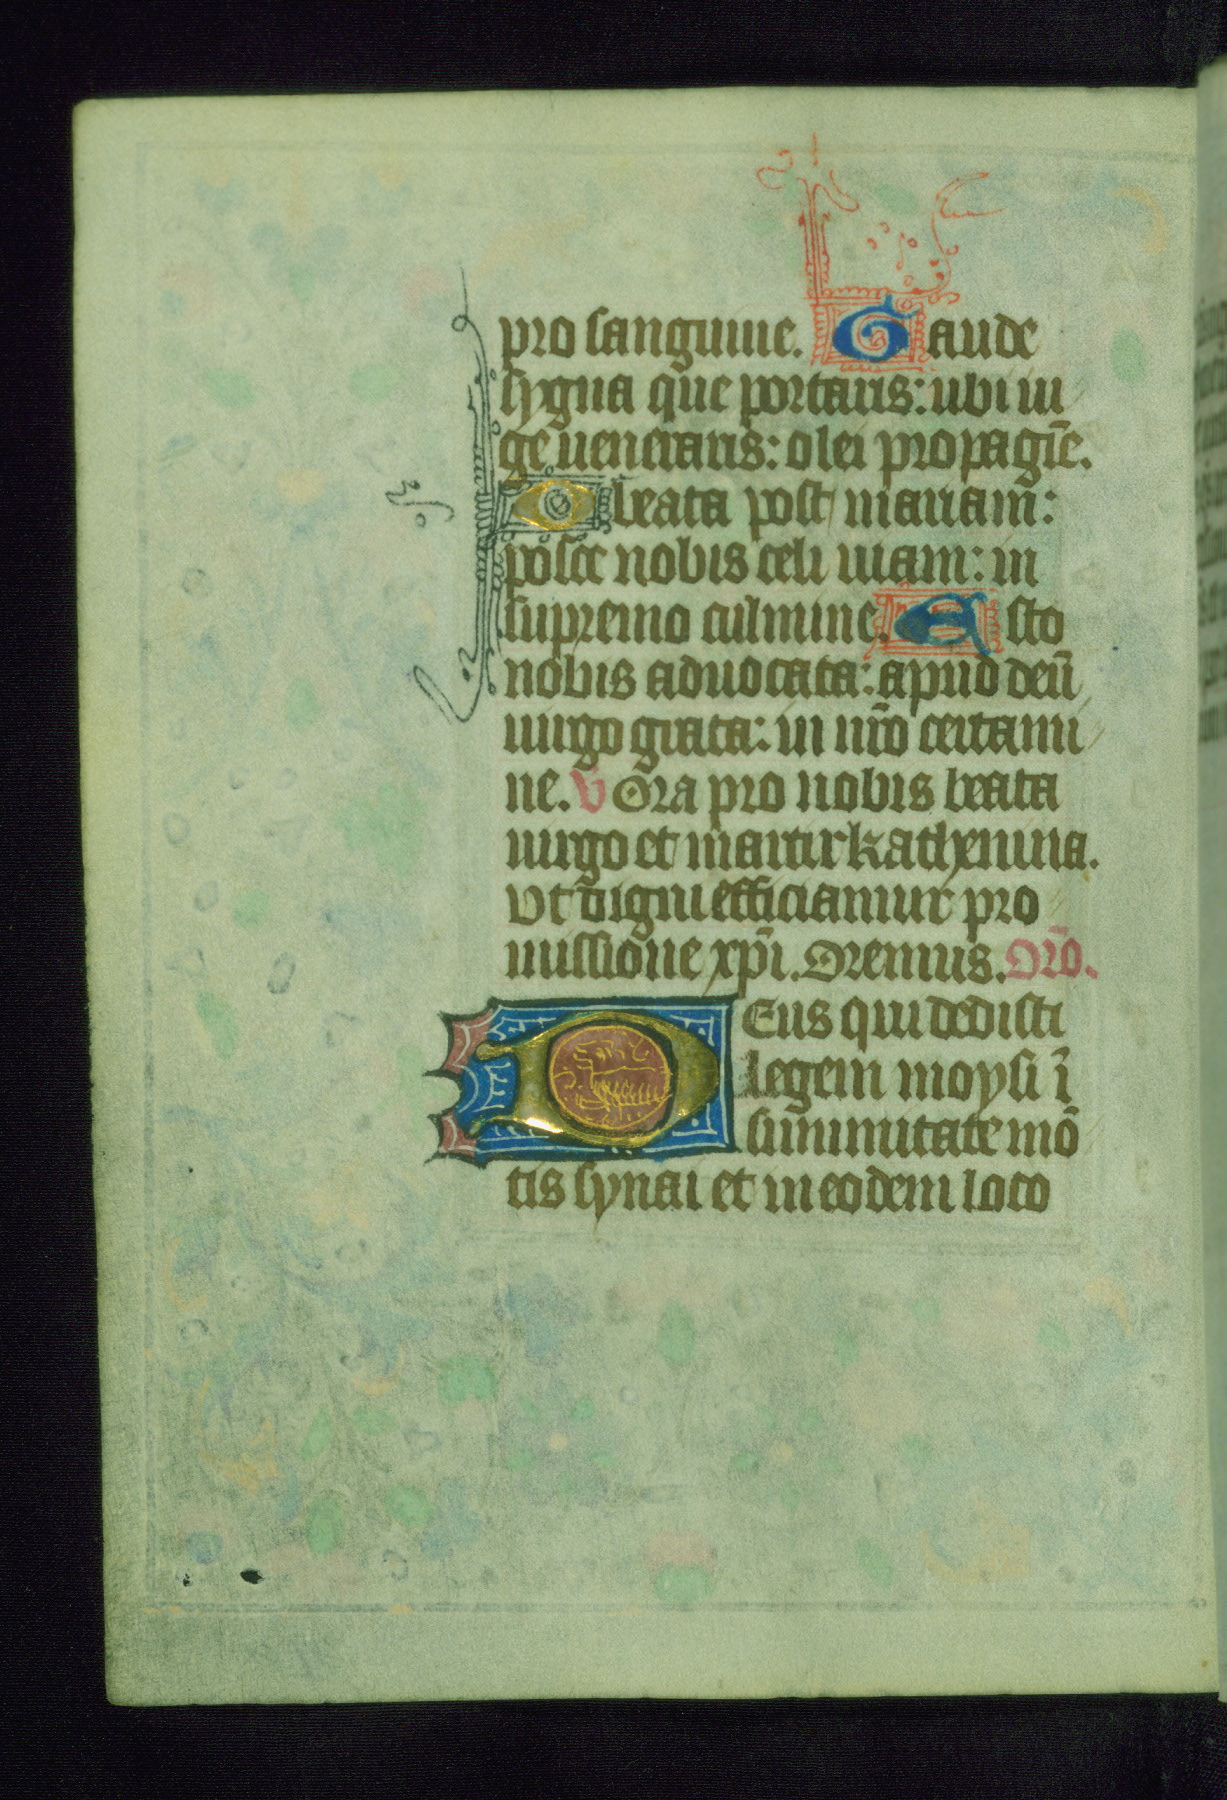 pro sanguine. Gaude
sygna que portaris: ubi iu
ge ueneraris: olei propagiē.
O beata post mariam:
posce nobis celi uiam: in
supremo culmine. Asto
nobis aduocata: apud deū
uirgo grata: in nr̄o certami
ne. V Ora pro nobis beata
uirgo et martir katherina.
Vt digni efficiamur pro
missione xp̄i. Oremus. Or̄o.
Deus qui dedisti
legem moysi ī
summitate mō
tis synai et in eodem loco